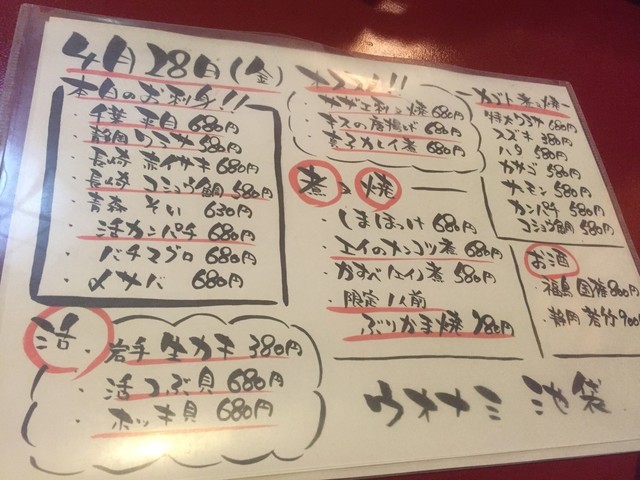 4月28日(金)
本日のお刺身!!
・千葉 平目 680円
・静岡 ワラサ 580円
・長崎 赤イサキ 680円
・長崎 コショウ鯛 580円
・青森 そい 630円
・活カンパチ 680円
・バチマグロ 680円
・〆サバ 680円
活
・岩手 生カキ 380円
・活つぶ貝 680円
・ホッキ貝 680円
オススメ!!
・サザエ刺 焼 680円
・キスの唐揚げ 680円
・赤子カレイ煮 680円
煮 焼
・しまほっけ 680円
・エイのナンコツ煮 680円
・かすべ 煮 580円
・限定1人前
ぶりかま焼 780円
カブト煮 焼
特大ワラサ 680円
スズキ 380円
ハタ 580円
カサゴ 580円
サーモン 580円
カンパチ 580円
コショウ鯛 580円
お酒
・福島 国権 800円
・静岡 若竹 900
ウオナミ 池袋